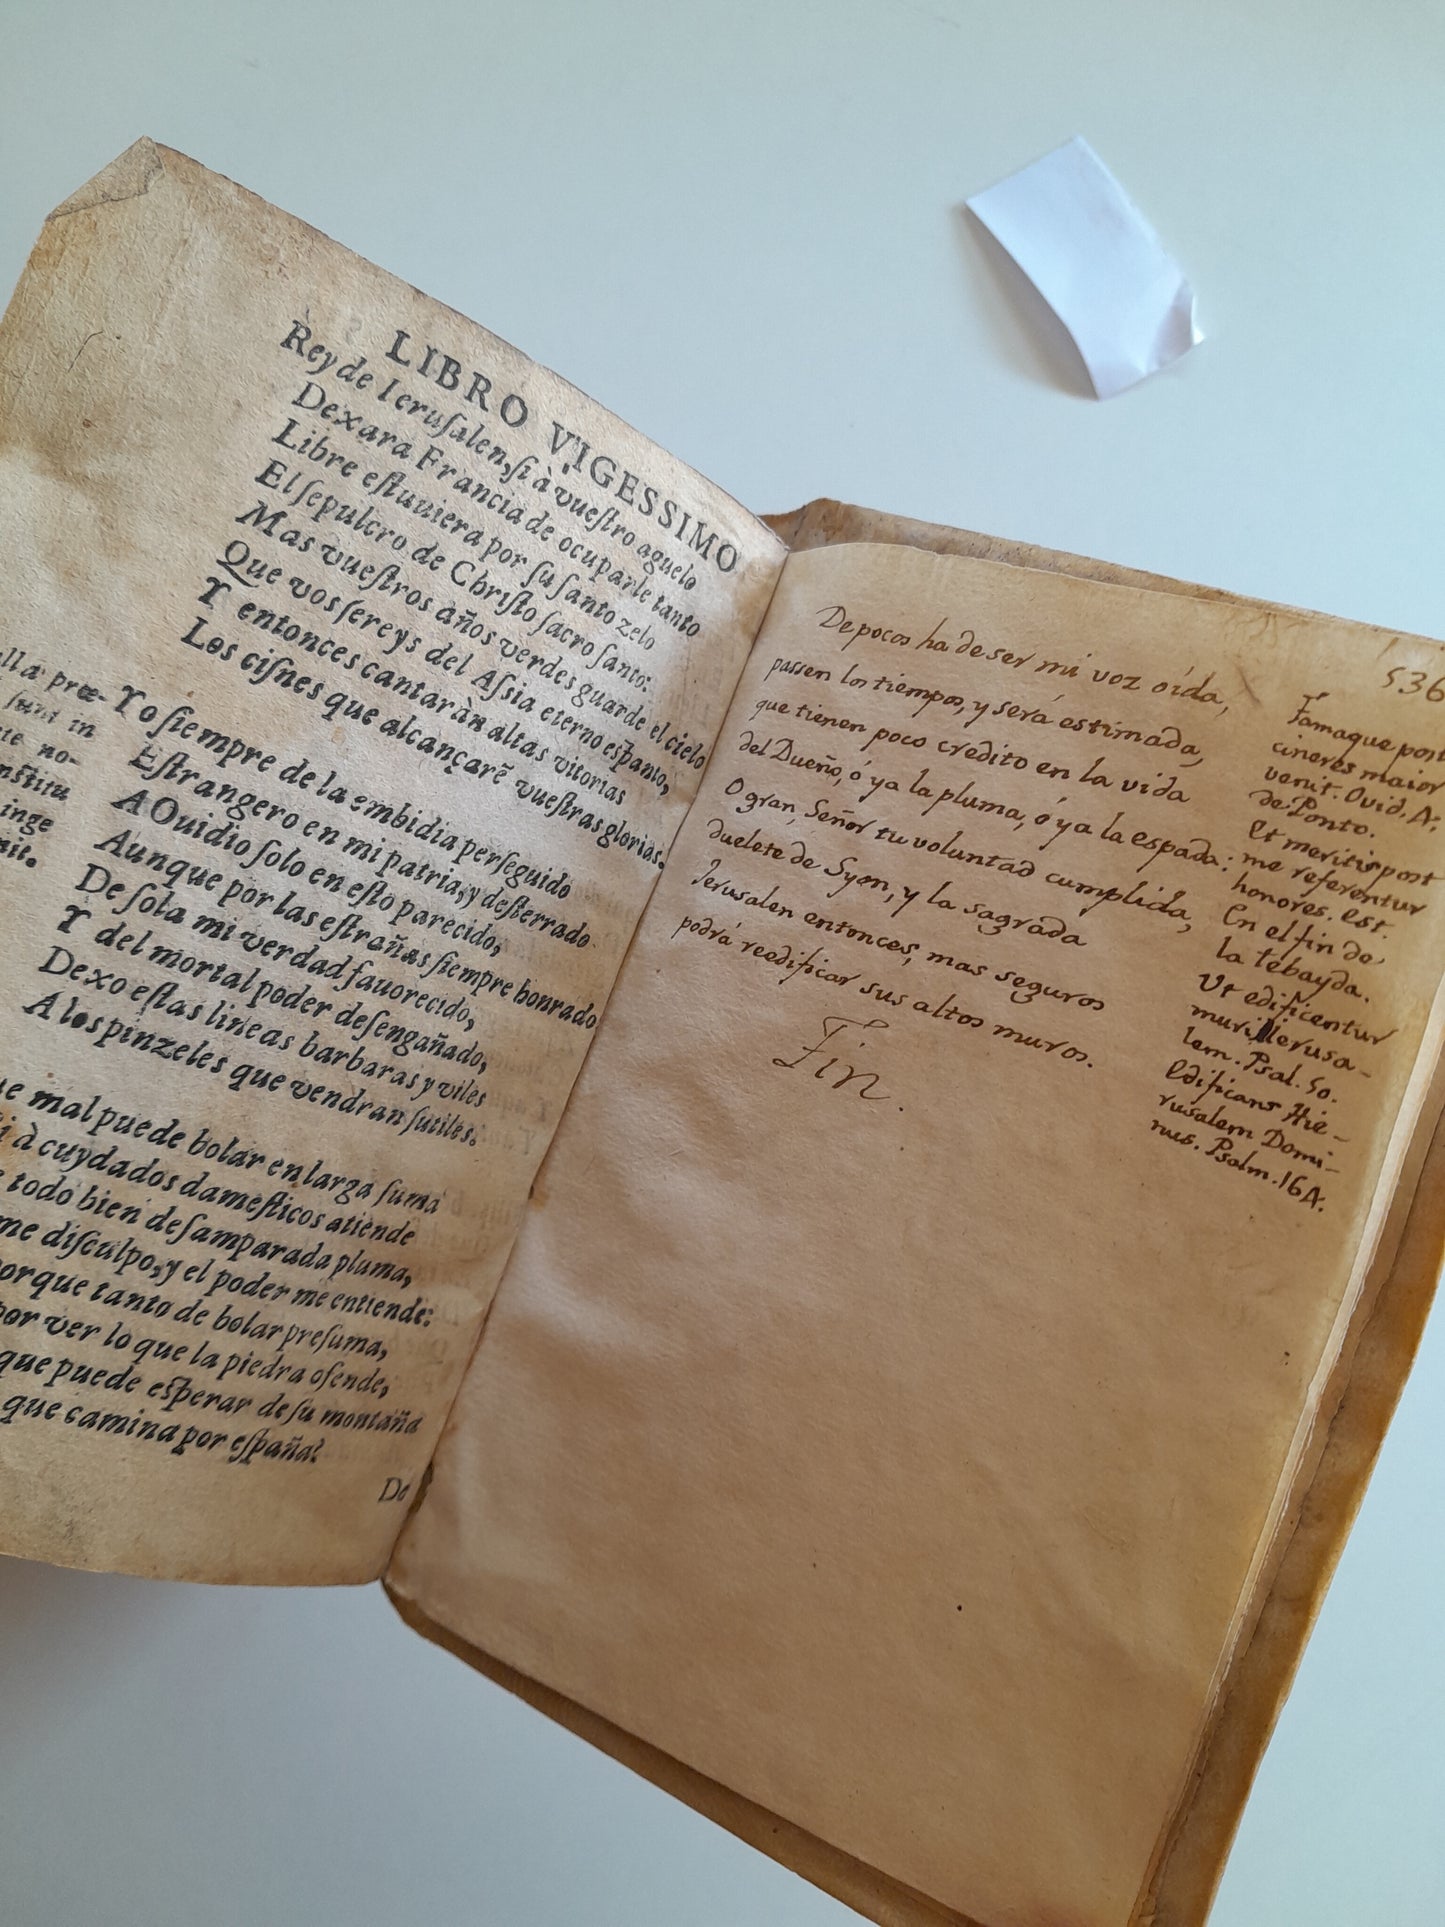 LIBRO VIGESSIMO
Rey de Ierusalen, si à vuestro aguelo
Dexara Francia de ocuparle tanto
Libre estuuiera por su santo zelo
El sepulcro de Christo sacro santo:
Mas vuestros años verdes guarde el cielo
Que vos sereys del Assia eterno espanto,
Y entonces cantaràn altas vitorias
Los cisnes que alcançarẽ vuestras glorias.
Yo siempre de la embidia perseguido
Estrangero en mi patria, y desterrado
A Ouidio solo en esto parecido,
Aunque por las estrañas siempre honrado
De sola mi verdad fauorecido,
Y del mortal poder desengañado,
Dexo estas lineas barbaras y viles
A los pinzeles que vendran sutiles.
mal puede bolar en larga suma
à cuydados damesticos atiende
todo bien desamparada pluma,
me disculpo, y el poder me entiende:
porque tanto de bolar presuma,
por ver lo que la piedra ofende,
que puede esperar de su montaña
que camina por españa?
De
præ-
sunt in
no-
inge
536
De pocos ha de ser mi voz oída,
passen los tiempos, y será estimada,
que tienen poco credito en la vida
del Dueño, ó ya la pluma, ó ya la espada:
O gran, Señor tu voluntad cumplida,
duelete de Syon, y la sagrada
Jerusalen entonces, mas seguros
podrá reedificar sus altos muros.
Fin.
Famaque post
cineres maior
venit. Ovid. A.
de Ponto.
Et meritis post
me referentur
honores. est.
En el fin de
la tebayda.
Ut edificentur
muri Ierusa-
lem. Psal. 50.
Edificans Hie-
rusalem Domi-
nus. Psalm. 16A.